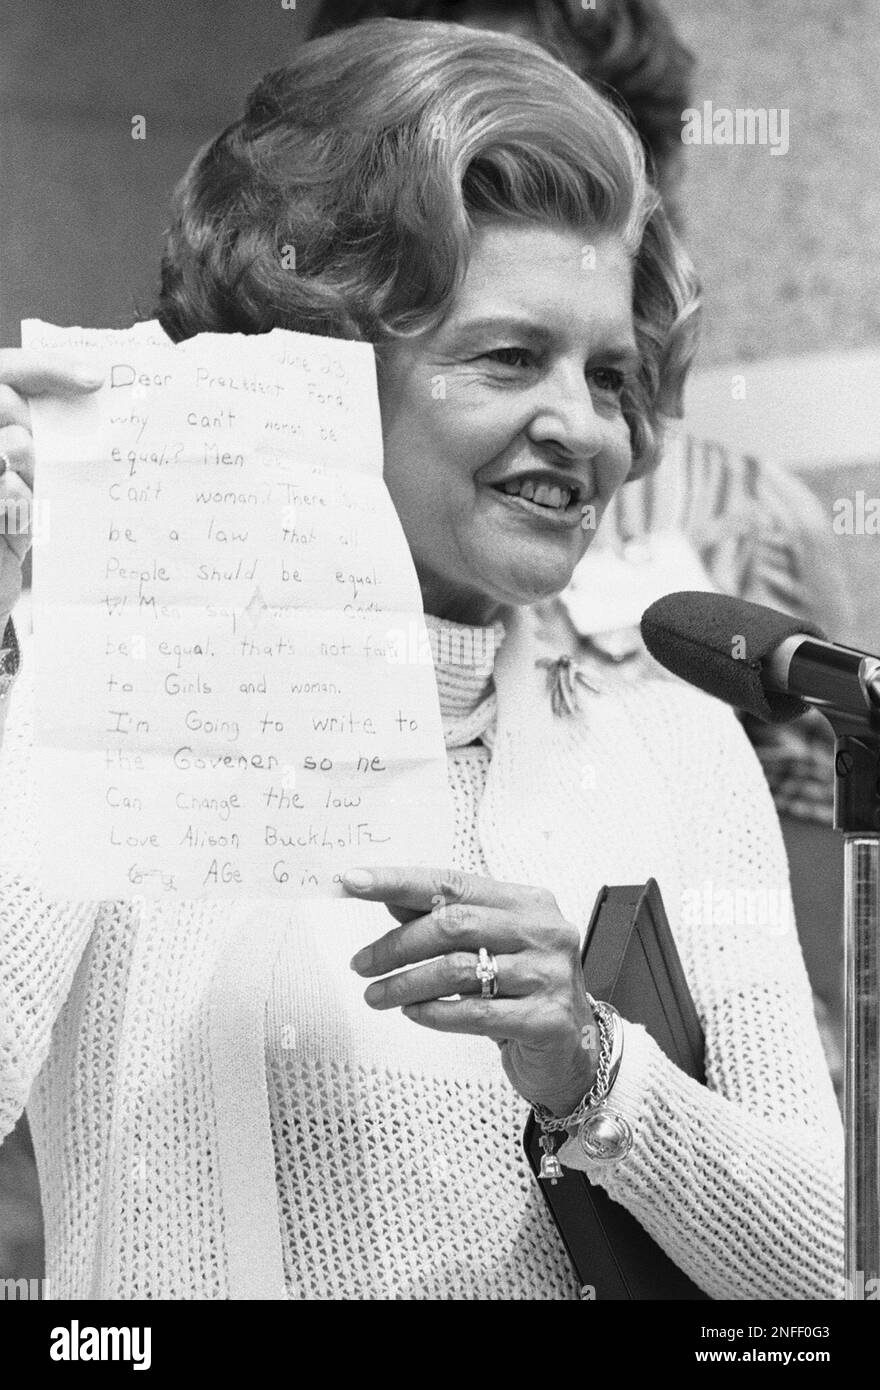 June 23,
Dear Prezedent Ford,
why can't woman be
equal? Men
can't woman? There
be a law that all
People shuld be equal.
Men say can't
be equal. that's not fair
to Girls and woman.
I'm Going to write to
the Govener so he
Can Change the law
Love Alison Buckholtz
AGe 6 in a
alamy
Image ID: 2NFF0G3
www.alamy.com